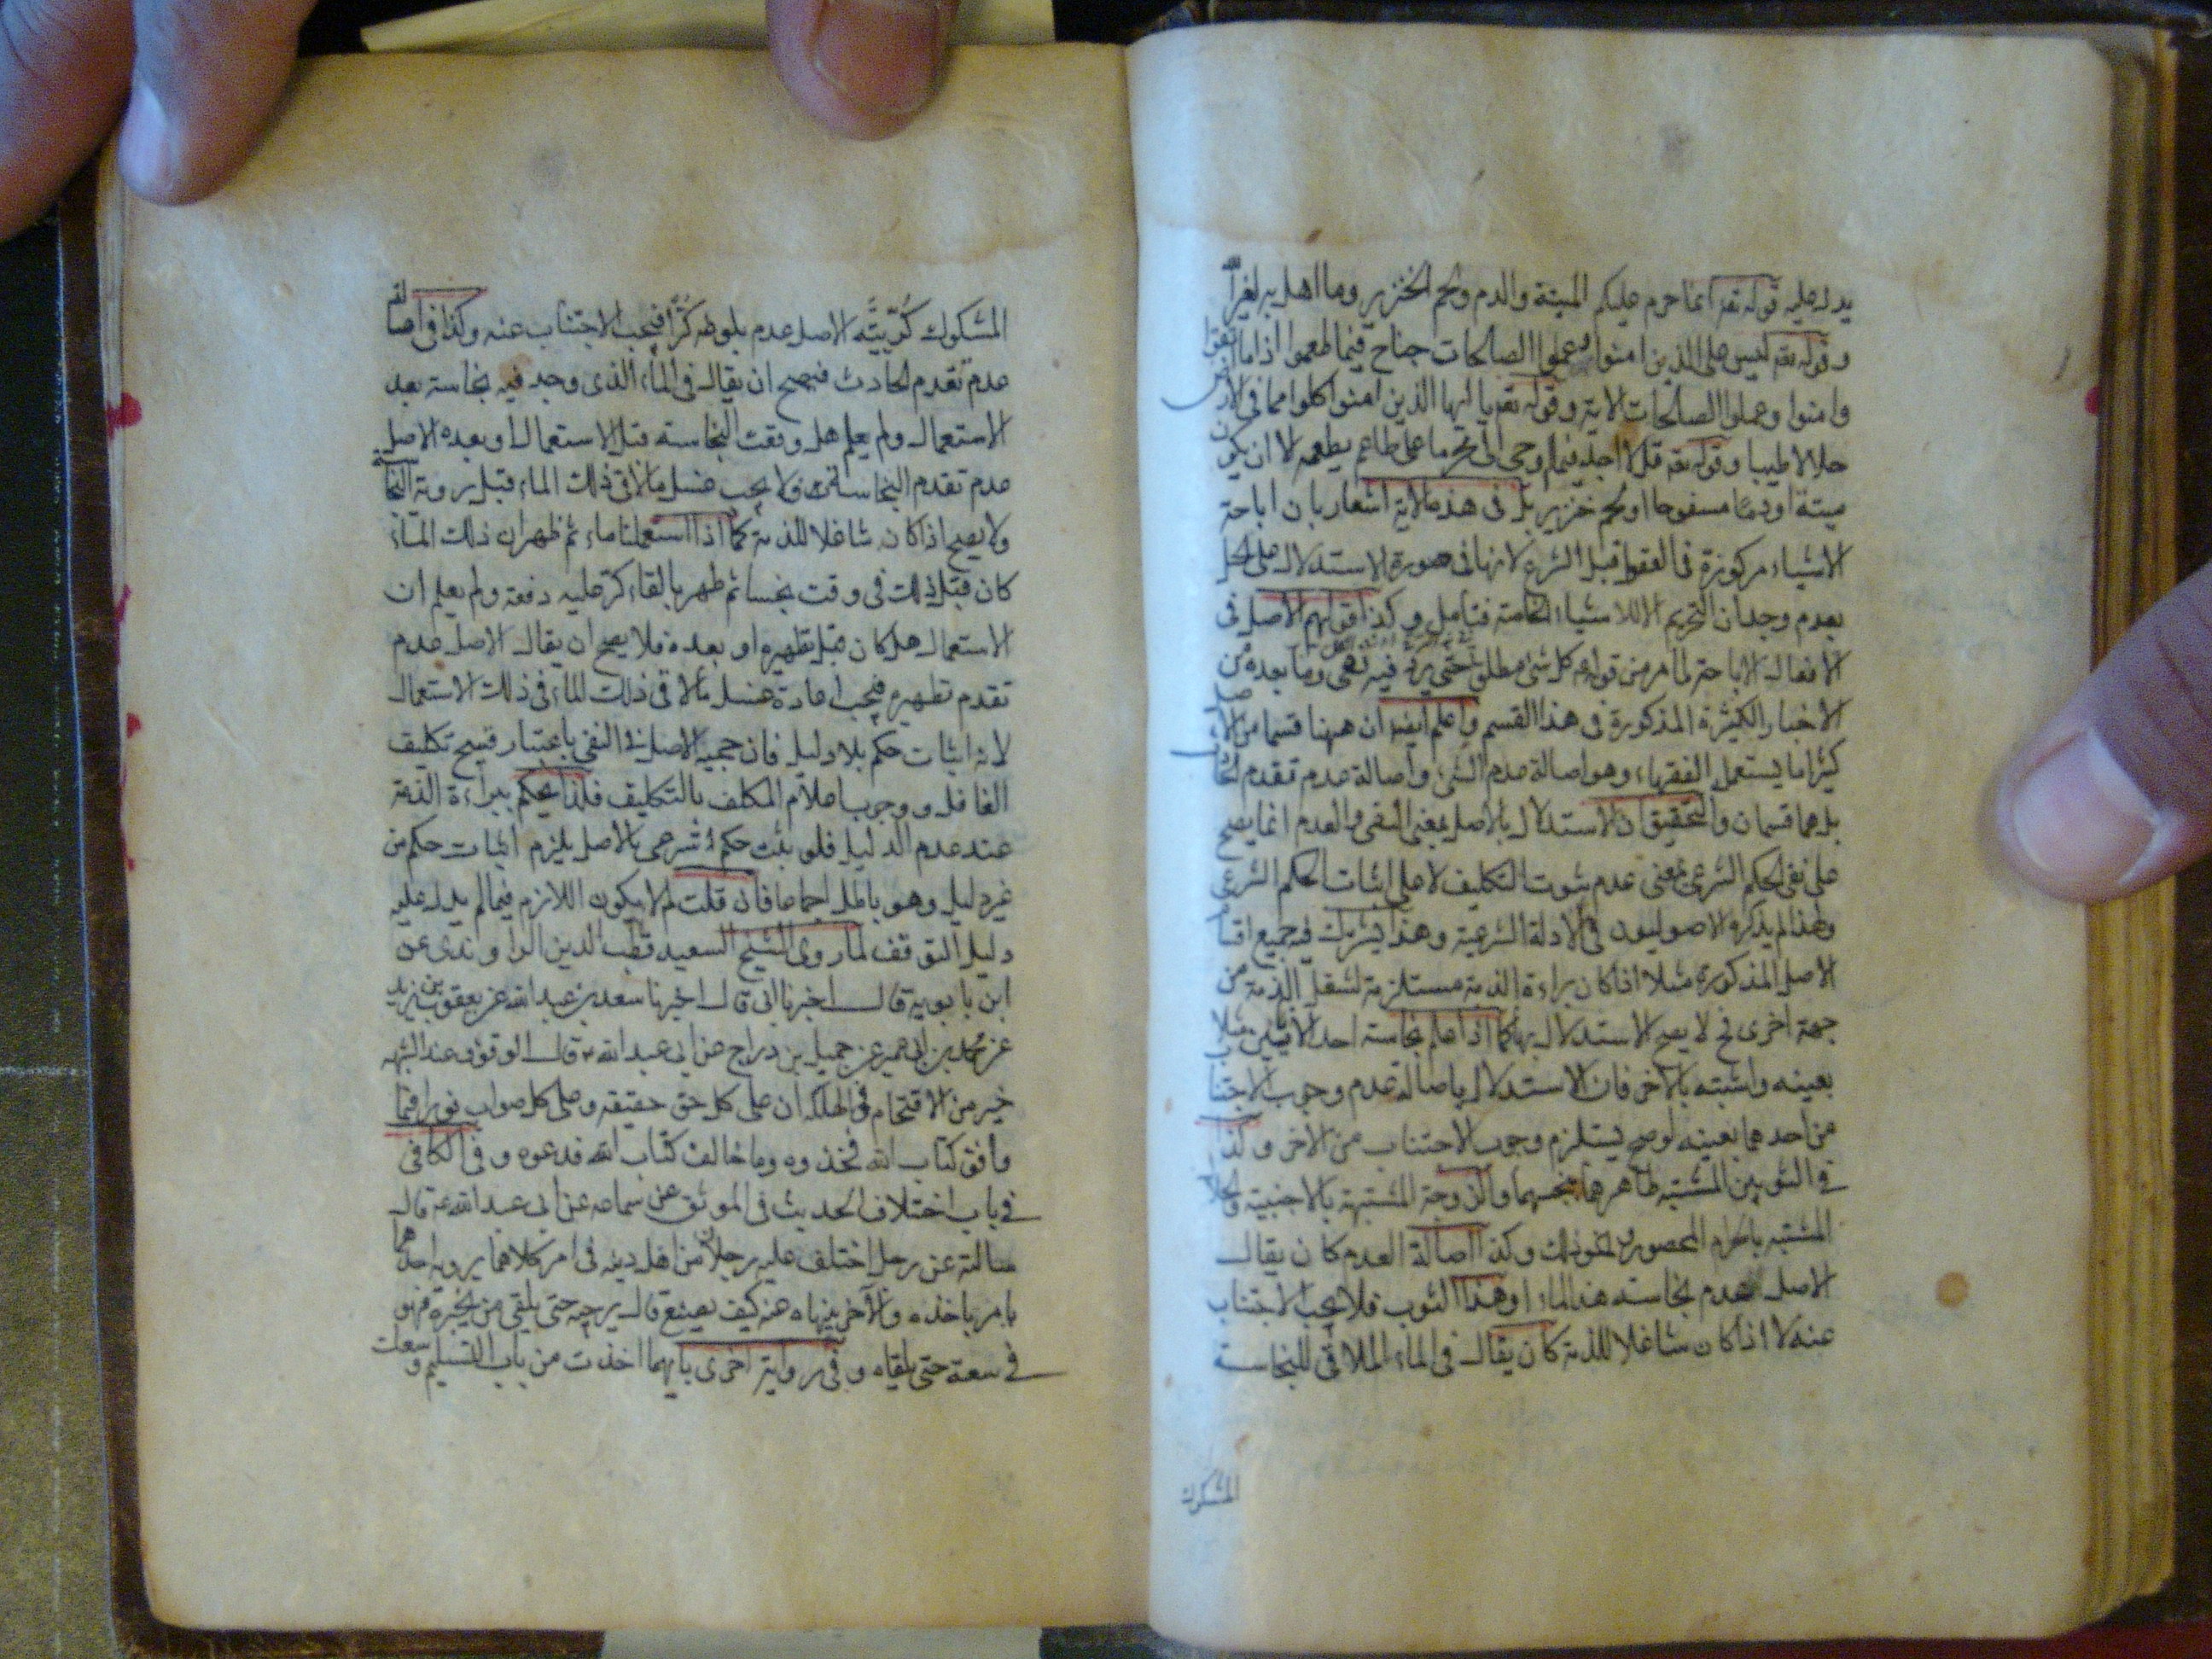 يدل عليه قوله تعه انما حرم عليكم الميتة والدم ولحم الخنزير وما اهل به لغير الله
وقوله تعه ليس على الذين امنوا وعملوا الصالحات جناح فيما طعموا اذا ما اتقوا
وامنوا وعملوا الصالحات الاية وقوله تعه يا ايها الذين امنوا كلوا مما فى الارض
حلالا طيبا وقوله تعه قل لا اجد فيما اوحى الى محرما على طاعم يطعمه الا ان يكون
ميتة او دما مسفوحا او لحم خنزير بل فى هذه الاية اشعار بان اباحة
الاشياء مركوزة فى العقول قبل الشرع لانها فى صورة الاستدلال على الحل
بعدم وجدان التحريم الا للاشياء الخاصة فتامل وكذا قولهم الاصل فى
الافعال الاباحة لما مر من قوله عم كل شئ مطلق حتى يرد فيه نهى وما بعده من
الاخبار الكثيرة المذكورة فى هذا القسم واعلم ايضا ان ههنا قسما من الاصل
كثيرا ما يستعمله الفقهاء وهو اصالة عدم الشئ واصالة عدم تقدم الحادث
بل هما قسمان والتحقيق ان الاستدلال بالاصل بمعنى النفى والعدم انما يصح
على نفى الحكم الشرعى بمعنى عدم ثبوت التكليف لا على اثبات الحكم الشرعى
ولهذا لم يذكره الاصوليون فى الادلة الشرعية وهذا يشترك فيه جميع اقسام
الاصل المذكورة مثلا اذا كان براءة الذمة مستلزمة لشغل الذمة من
جهة اخرى فح لا يصح الاستدلال بها كما اذا علم نجاسة احد الانائين مثلا
بعينه واشتبه بالاخر فان الاستدلال باصالة عدم وجوب الاجتناب
من احدهما بعينه لو صح يستلزم وجوب الاجتناب من الاخر وكذا
فى الثوبين المشتبه طاهرهما بنجسهما والزوجة المشتبهة بالاجنبية والحلال
المشتبه بالحرام المحصور ونحو ذلك وكذا اصالة العدم كان يقال
الاصل عدم نجاسة هذا الماء او هذا الثوب فلا يجب الاجتناب
عنه لا اذا كان شاغلا للذمة كان يقال فى الماء الملاقى للنجاسة
المشكوك
المشكوك كريته الاصل عدم بلوغه كرا فيجب الاجتناب عنه وكذا فى اصالة
عدم تقدم الحادث فيصح ان يقال فى الماء الذى وجد فيه نجاسة بعد
الاستعمال ولم يعلم هل وقعت النجاسة قبل الاستعمال او بعده الاصل
عدم تقدم النجاسة فلا يجب غسل ما لاقى ذلك الماء قبل رؤية النجاسة
ولا يصح اذا كان شاغلا للذمة كما اذا استعملنا ماء ثم ظهر ان ذلك الماء
كان قبل ذلك فى وقت نجسا ثم طهر بالقاء كر عليه دفعة ولم يعلم ان
الاستعمال هل كان قبل تطهيره او بعده فلا يصح ان يقال الاصل عدم
تقدم تطهيره فيجب اعادة غسل ما لاقى ذلك الماء فى ذلك الاستعمال
لانه اثبات حكم بلا دليل فان حجية الاصل فى النفى باعتبار قبح تكليف
الغافل ووجوب اعلام المكلف بالتكليف فلذا يحكم ببراءة الذمة
عند عدم الدليل فلو ثبت حكم شرعى بالاصل يلزم اثبات حكم من
غير دليل وهو باطل اجماعا فان قلت لم لا يكون اللازم فيما لم يدل عليه
دليل التوقف لما روى الشيخ السعيد قطب الدين الراوندى عن
ابن بابويه قال اخبرنا ابى قال اخبرنا سعد بن عبد الله عن يعقوب بن يزيد
عن محمد بن ابى عمير عن جميل بن دراج عن ابى عبد الله ع قال الوقوف عند الشبهة
خير من الاقتحام فى الهلكة ان على كل حق حقيقة وعلى كل صواب نورا فما
وافق كتاب الله فخذوه وما خالف كتاب الله فدعوه وفى الكافى
فى باب اختلاف الحديث فى الموثق عن سماعه عن ابى عبد الله ع قال
سالته عن رجل اختلف عليه رجلان من اهل دينه فى امر كلاهما يرويه احدهما
يامر باخذه والاخر ينهاه عنه كيف يصنع قال يرجئه حتى يلقى من يخبره فهو
فى سعة حتى يلقاه وفى رواية اخرى بايهما اخذت من باب التسليم وسعك